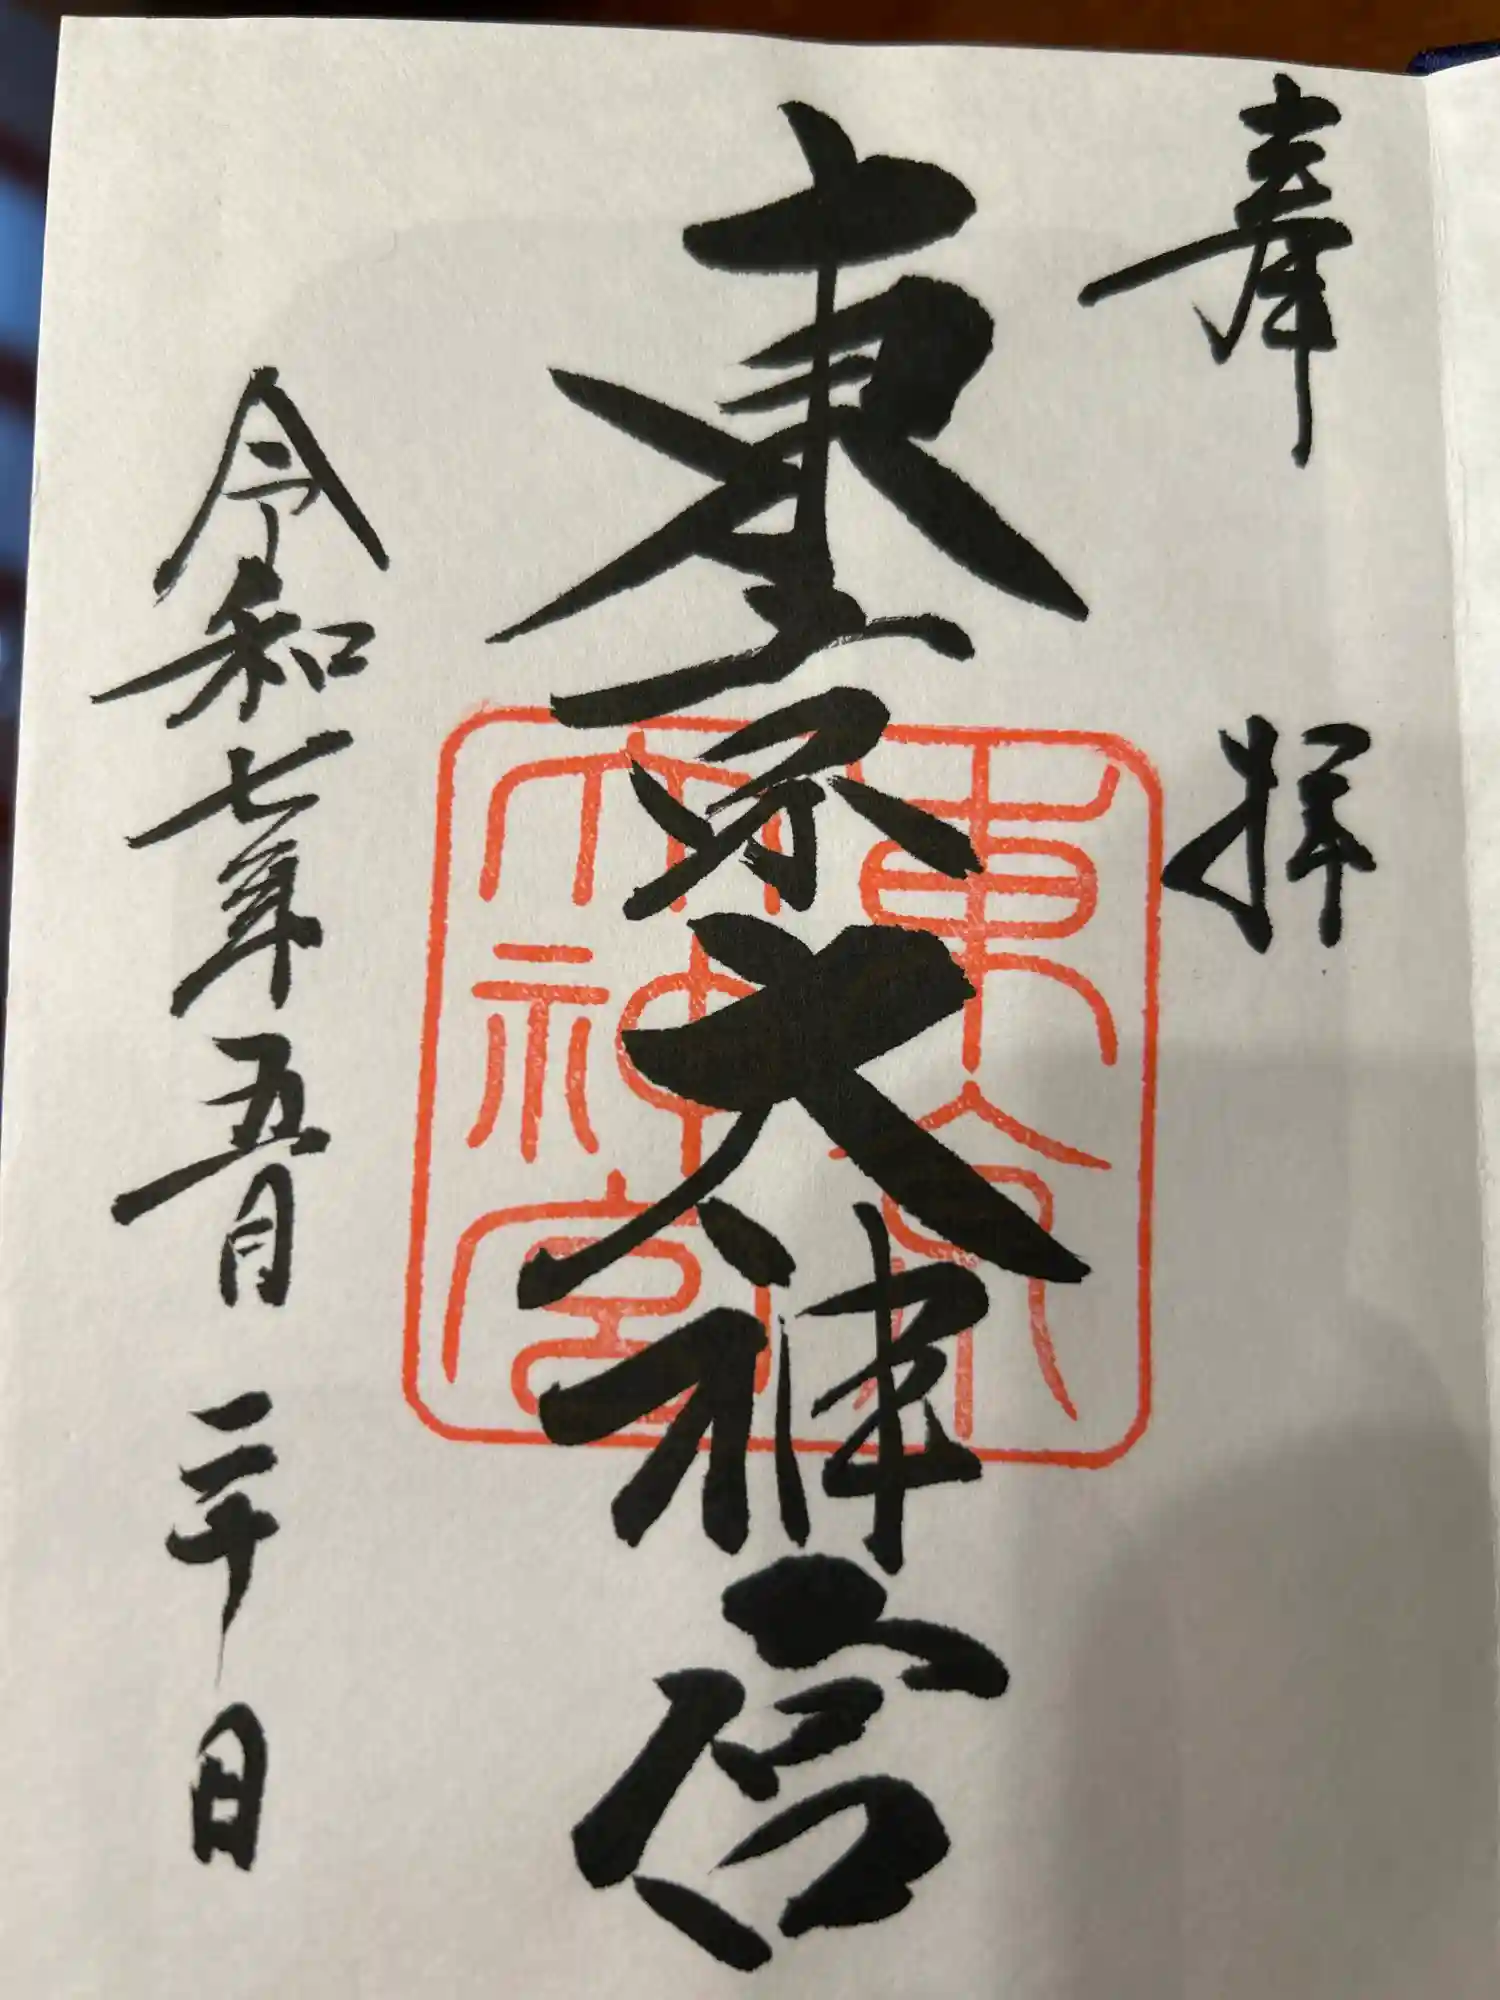 奉拝
東京大神宮
東京大神宮
令和七年五月二十日